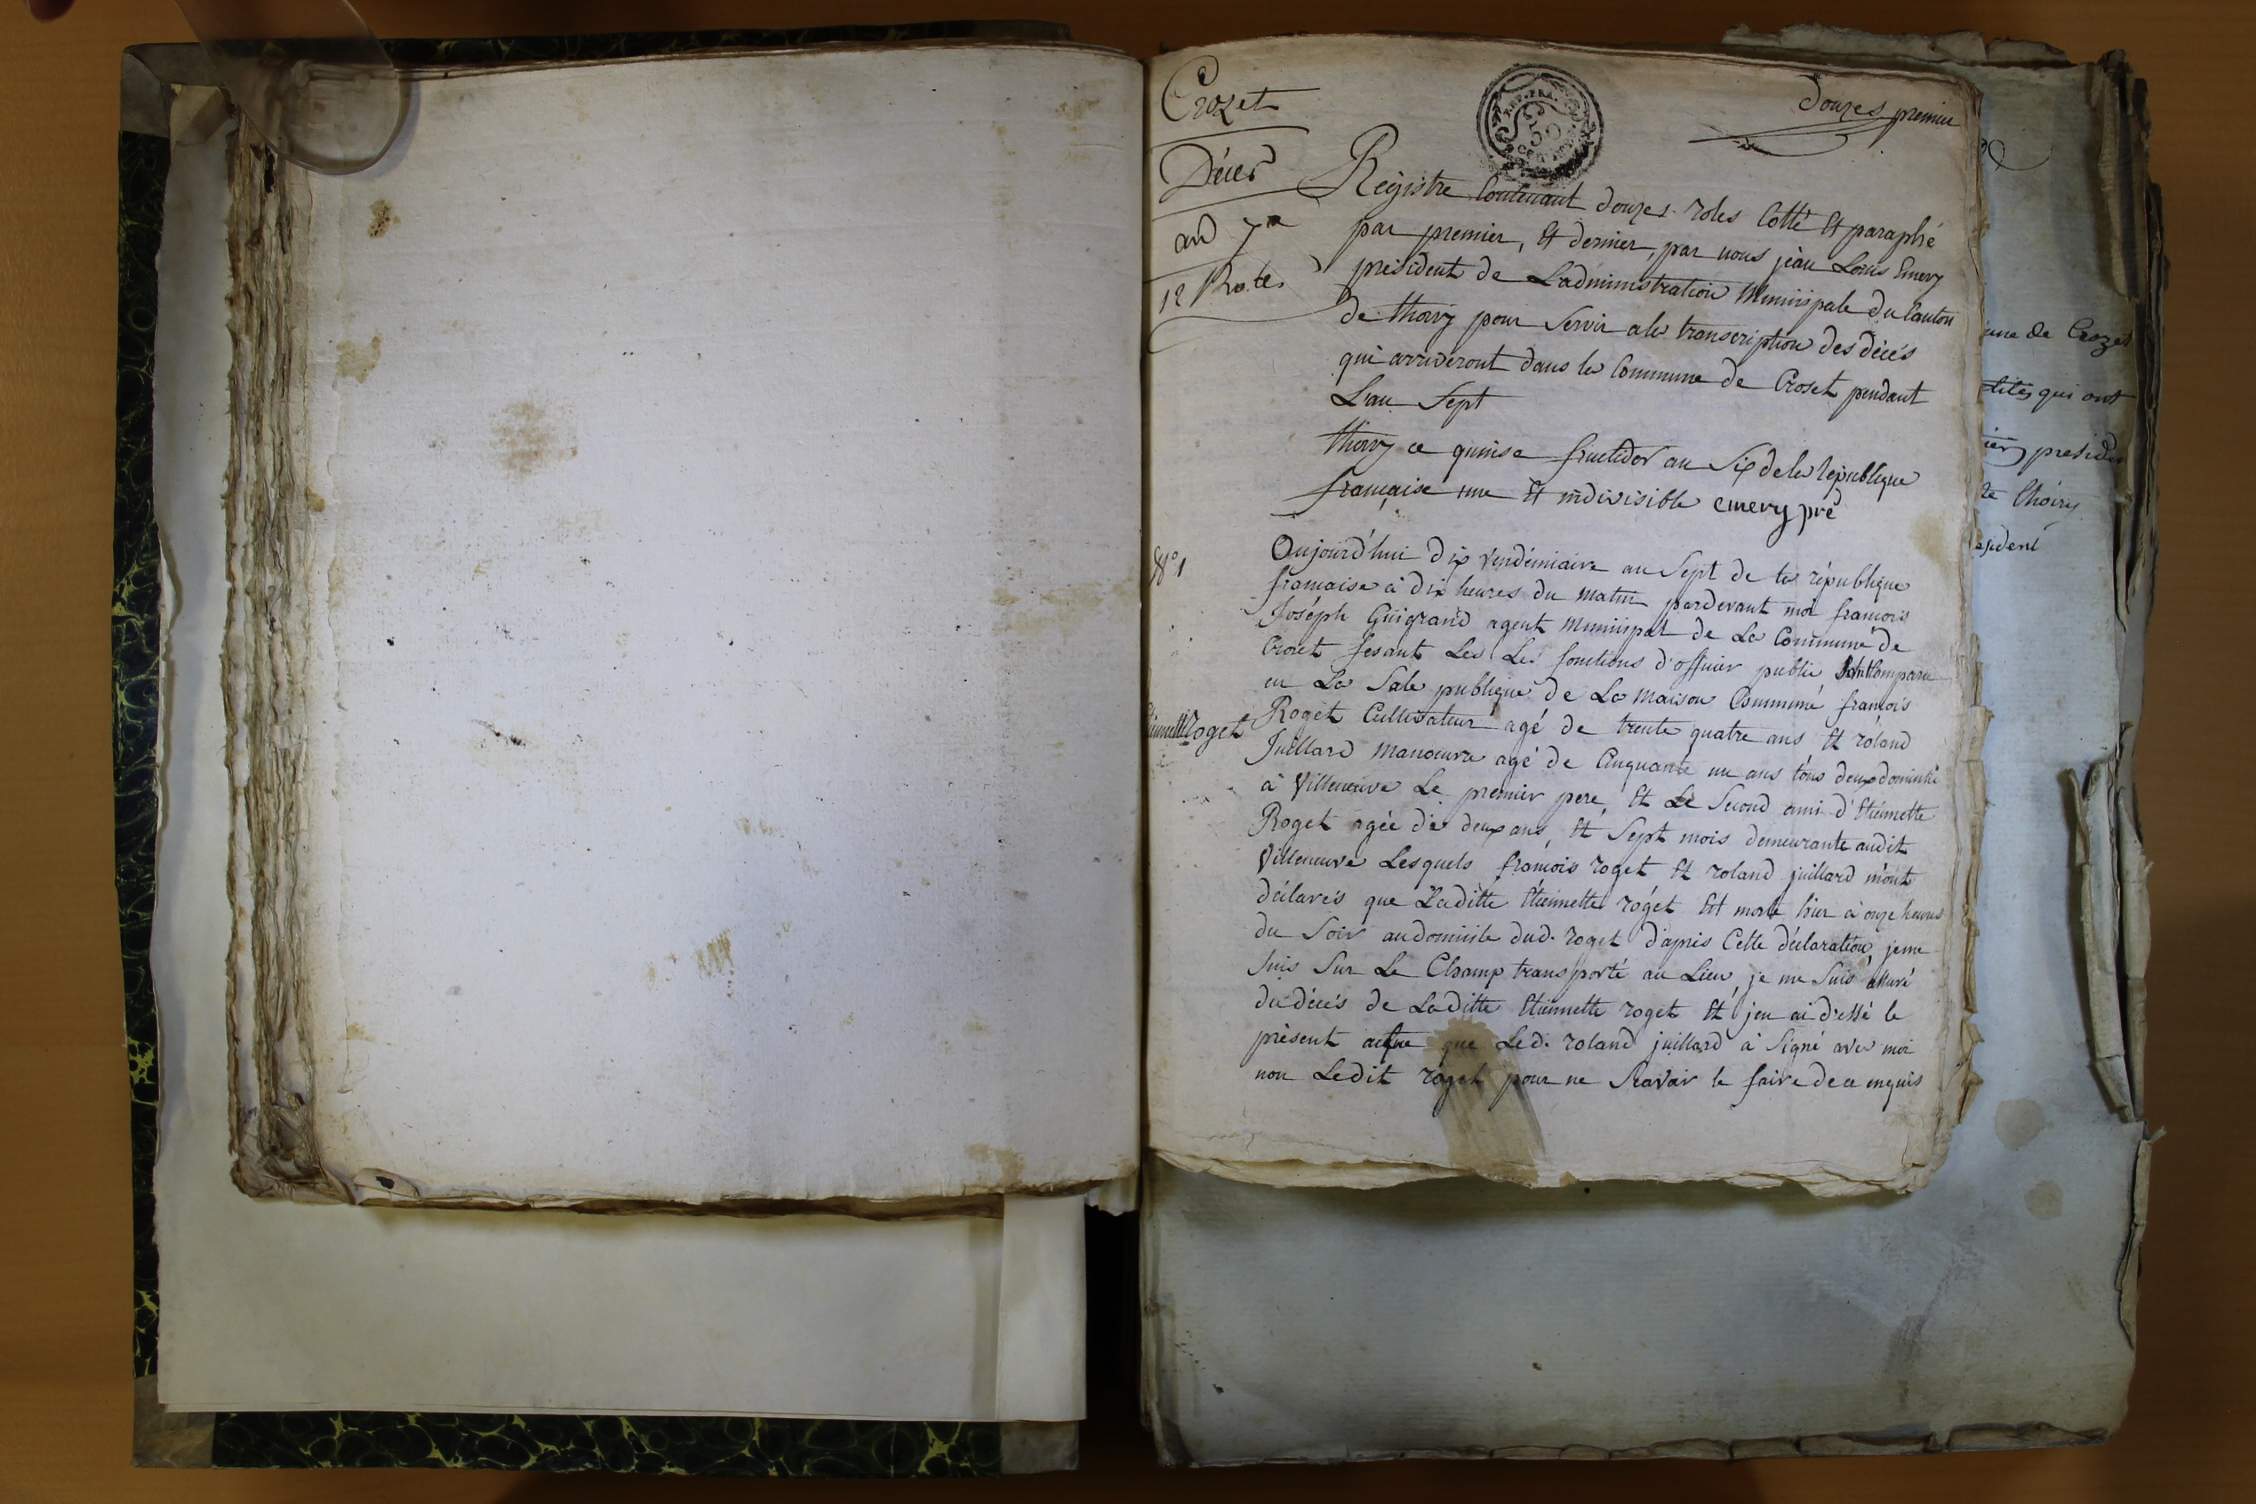 Crozet
Décés
an 7me
12 Rôles
REP. FRA.
50
CENT.
douzes premier
Régistre Contenant douzes roles Cotté Et paraphé
par premier, Et dernier, par nous jean Louis Emery
président de L'administration Municipale du Canton
de thoiry pour Servir a la transcription des décés
qui arriveront dans la Commune de Croset pendant
L'an Sept
thoiry ce quinse fructidor an Six de la République
française une Et indivisible emery pré
N° 1
Aujourd'hui dix vendémiaire an Sept de la république
française à dix heures du matin pardevant moi françois
Joséph Guigrand agent Municipal de La Commune de
Crozet fesant Les Les fonctions d'officier public Sont Comparu
en La Sale publique de La Maison Commune françois
Etiennette Roget
Roget Cultivateur agé de trente quatre ans Et roland
Juillard manoeuvre agé de Cinquante un ans tous deux domicilié
à Villeneuve Le premier pere, Et Le Second ami d'Etiennette
Roget agée de deux ans Et Sept mois demeurante audit
Villeneuve Lesquels françois roget Et roland juillard m'ont
déclarés que Laditte Etiennette roget Est morte hier à onze heures
du Soir au domicile dud. roget d'apris Cette déclaration, je me
Suis Sur Le Champ transporté au Lieu, je me Suis assuré
du décés de Laditte Etiennette roget Et j'en ai d'essé le
présent acte que Led. roland juillard à Signé avec moi
non Ledit roget pour ne Scavoir le faire de ce enquis
une de Crozet
dites qui ont
presid
de thoiry
esident